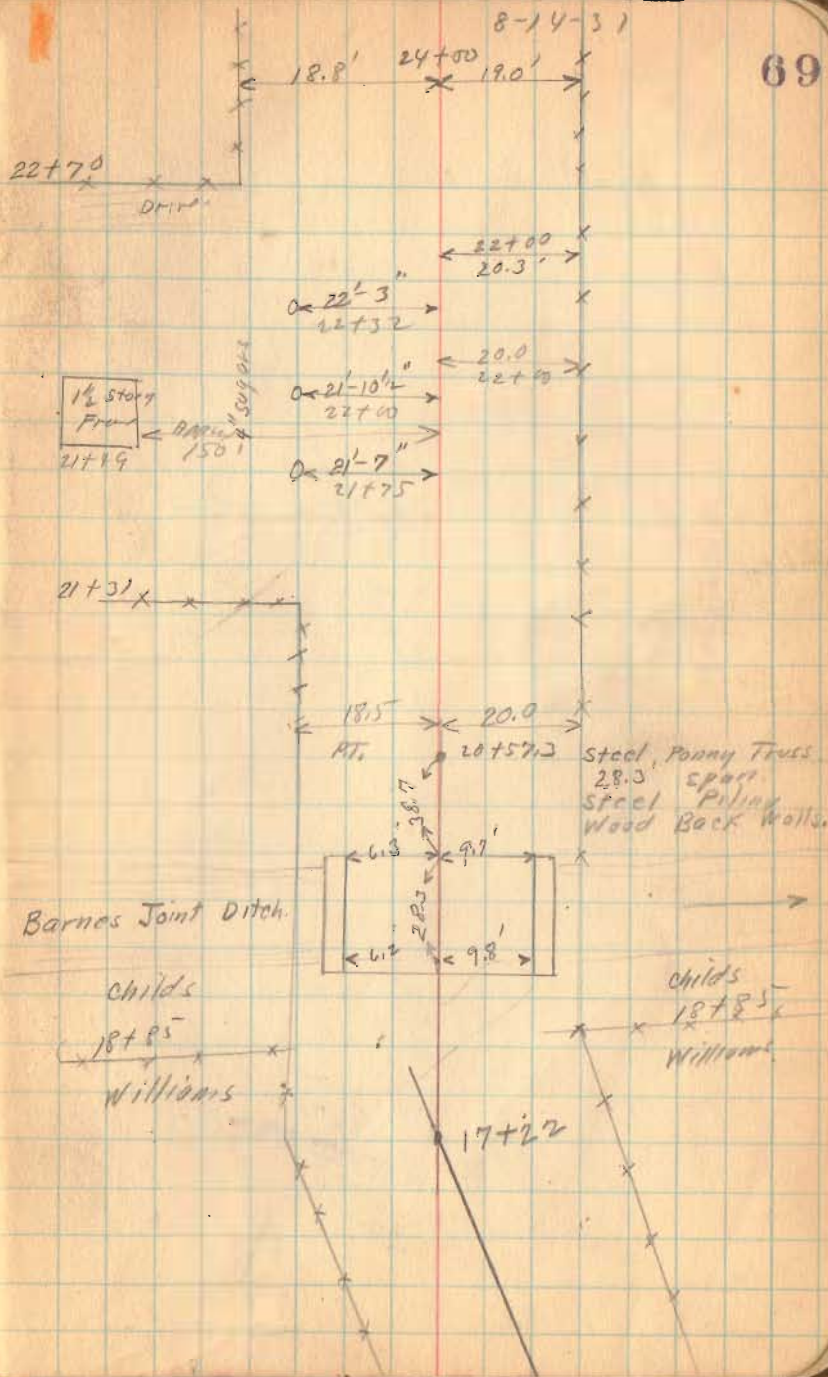 8-14-31
69
24+00
18.8' 19.0'
22+70
Drive
22+00
20.3'
22'-3"
22+32
20.0
22+00
1½ Story
Frame
21+49
150'
4" Sugars
21'-10½"
22+00
21'-7"
21+75
21+31
18.5 20.0
P.T. 20+57.3
Steel Ponny Truss
28.3 span.
Steel Piling
Wood Back Walls.
38.7
6.3' 9.7'
28.3
Barnes Joint Ditch.
6.2' 9.8'
Childs
18+85
Williams
Childs
18+85
Williams
17+22